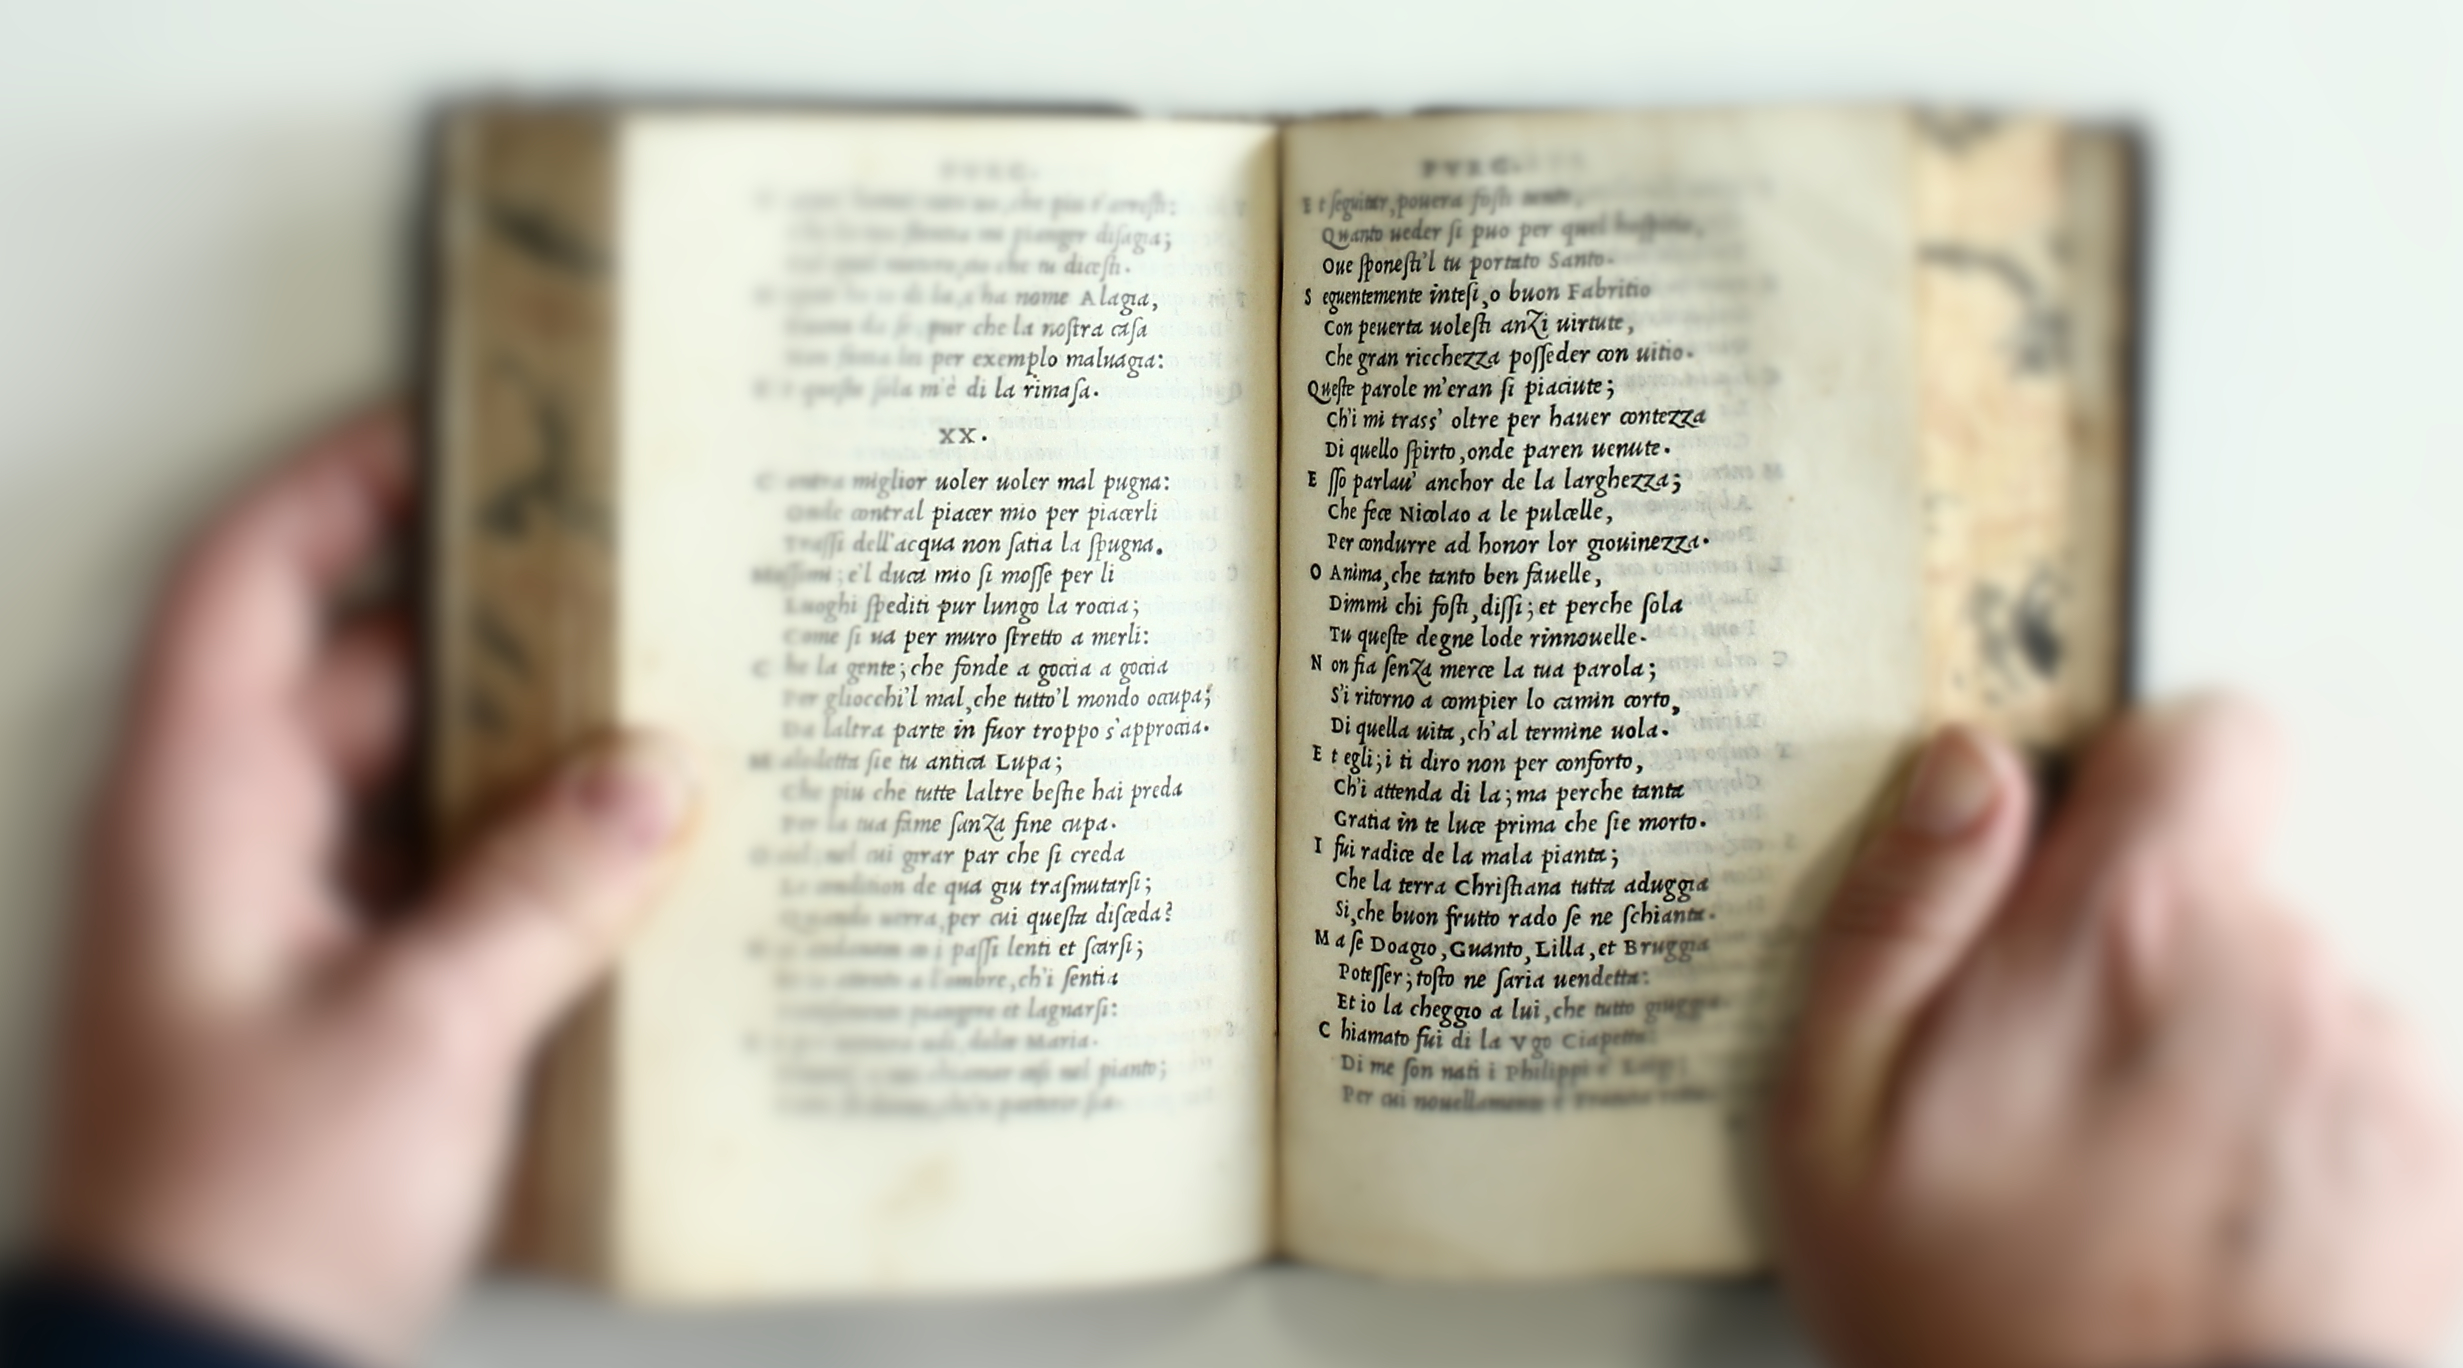 PVRG.
che piu t'arresti:
mi pianger disagia;
che tu dicesti.
di la, c'ha nome Alagia,
pur che la noſtra caſa
per exemplo maluagia:
queſta ſola m'è di la rimaſa.
XX.
Contra miglior uoler uoler mal pugna:
Onde contral piacer mio per piacerli
Traſſi dell'acqua non ſatia la ſpugna.
Moſſimi; e'l duca mio ſi moſſe per li
Luoghi ſpediti pur lungo la roccia;
Come ſi ua per muro ſtretto a merli:
Che la gente; che fonde a goccia a goccia
Per gliocchi'l mal, che tutto'l mondo occupa;
Da laltra parte in fuor troppo s'approccia.
Maledetta ſie tu antica Lupa;
Che piu che tutte laltre beſtie hai preda
Per la tua fame ſanza fine cupa.
O ciel, nel cui girar par che ſi creda
Le condition de qua giu traſmutarſi;
Quando uerra, per cui queſta diſceda?
andauam i paſſi lenti et ſcarſi;
attento a l'ombre, ch'i ſentia
piangere et lagnarſi:
dolce Maria.
coſi nel pianto;
PVRG.
Et ſeguitar, pouera foſti tanto,
Quanto ueder ſi puo per quel hoſpitio,
Oue ſponeſti'l tu portato Santo.
Seguentemente inteſi, o buon Fabritio
Con peuerta uoleſti anzi uirtute,
Che gran ricchezza poſſeder con uitio.
Queſte parole m'eran ſi piaciute;
Ch'i mi trass' oltre per hauer contezza
Di quello ſpirto, onde paren uenute.
Eſſo parlau' anchor de la larghezza;
Che fece Nicolao a le pulcelle,
Per condurre ad honor lor giouinezza.
O Anima, che tanto ben fauelle,
Dimmi chi foſti, diſſi; et perche ſola
Tu queſte degne lode rinnouelle.
Non fia ſenza merce la tua parola;
S'i ritorno a compier lo camin corto,
Di quella uita, ch'al termine uola.
Et egli; i ti diro non per conforto,
Ch'i attenda di la; ma perche tanta
Gratia in te luce prima che ſie morto.
I fui radice de la mala pianta;
Che la terra Chriſtiana tutta aduggia
Si, che buon frutto rado ſe ne ſchianta.
Ma ſe Doagio, Guanto, Lilla, et Bruggia
Poteſſer; toſto ne ſaria uendetta:
Et io la cheggio a lui, che tutto giuggia.
Chiamato fui di la Vgo Ciapetta:
Di me ſon nati i Philippi e Luigi;
Per cui nouellamente è Francia retta.